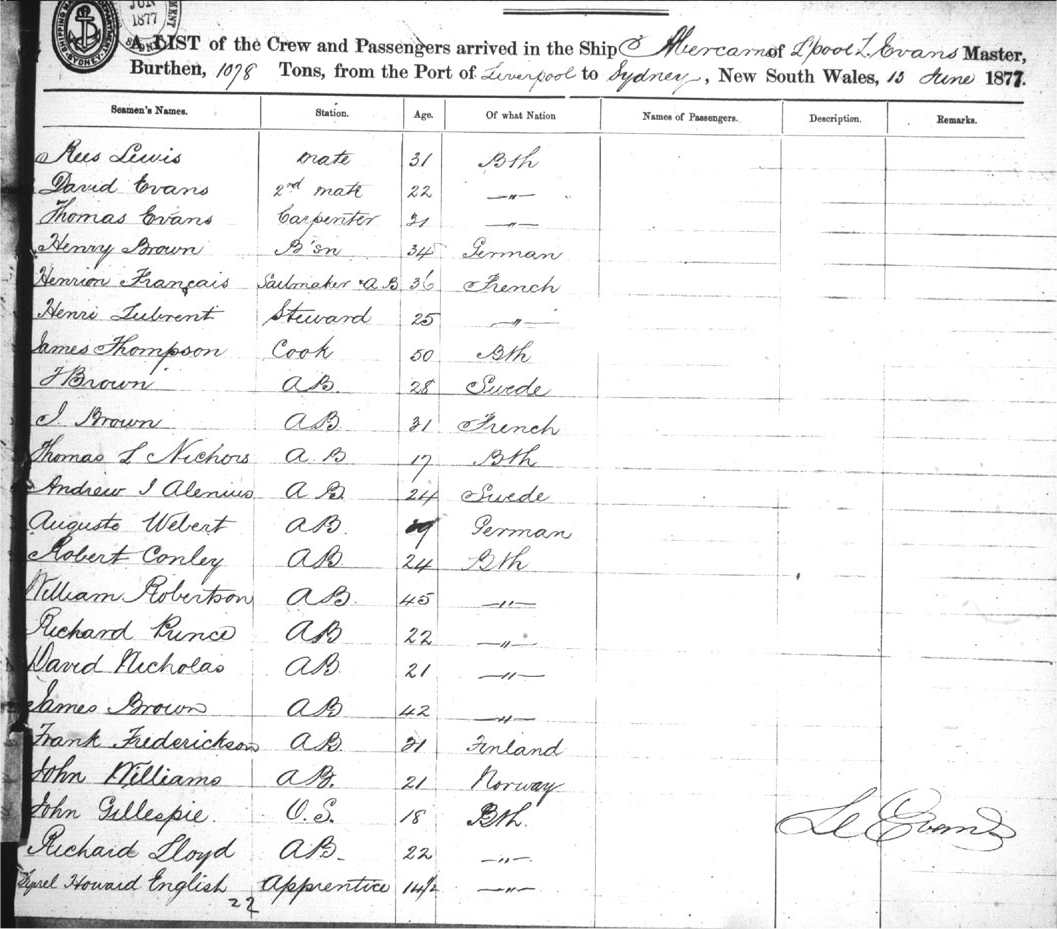 JUN
1877
SYDNEY
SHIPPING MASTER'S DEPARTMENT SYDNEY
A LIST of the Crew and Passengers arrived in the Ship Abercarn of L'pool L Evans Master,
Burthen, 1078 Tons, from the Port of Liverpool to Sydney, New South Wales, 15 June 1877.
Seamen's Names. Station. Age. Of what Nation Names of Passengers. Description. Remarks.
Rees Lewis mate 31 Bth
David Evans 2nd mate 22 —"—
Thomas Evans Carpenter 21 —"—
Henry Brown B'sn 34 German
Henrion Français Sailmaker & AB 36 French
Henri Steward 25 —"—
James Thompson Cook 50 Bth
F Brown AB. 28 Swede
J. Brown AB 31 French
Thomas L Nichors A.B 17 Bth
Andrew J Alenius AB 24 Swede
Auguste Webert AB. German
Robert Conley AB 24 Bth
William Robertson AB. 45 —"—
Richard Prince AB 22 —"—
David Nicholas AB. 21 —"—
James Brown AB 42 —"—
Frank Frederickson AB. 21 Finland
John Williams AB. 21 Norway
John Gillespie. O.S. 18 Bth.
L Evans
Richard Lloyd AB- 22 —"—
Howard English Apprentice 14½ —"—
22